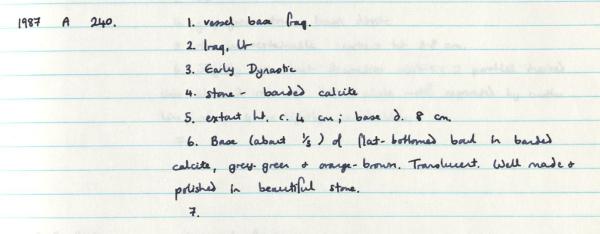 1987 A 240. 1. vessel base frag.
2. Iraq, Ur
3. Early Dynastic
4. stone - banded calcite
5. extant ht. c. 4 cm; base d. 8 cm
6. Base (about 1/3) of flat-bottomed bowl in banded
calcite, grey-green & orange-brown. Translucent. Well made &
polished in beautiful stone.
7.